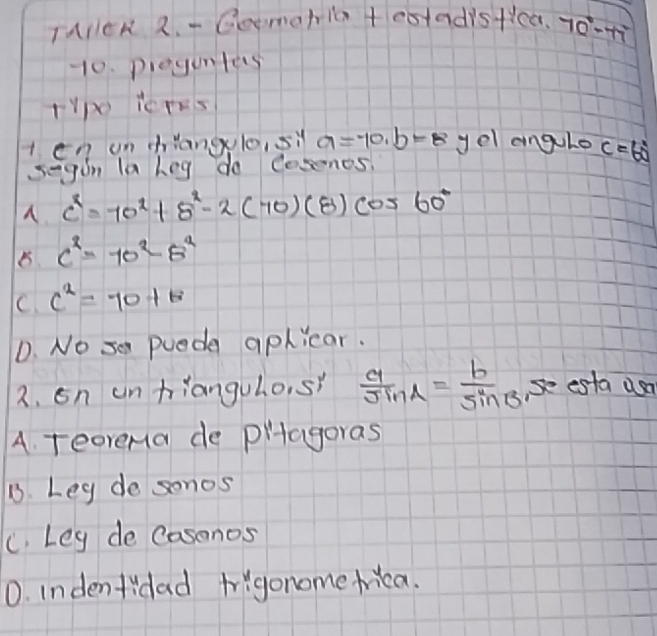 Taller 2. - Geometria + estadistica. 10°-
10. preguntas
tipo icres
1. en un triangulo, si a=10, b=8 y el angulo c=60°
según la Ley de Cosenos.
A. c² = 10² + 8² - 2(10)(8) cos 60°
B. c² = 10² - 8²
C. c² = 10 + 8
D. No se puede aplicar.
2. en un triangulo, si a/sin A = b/sin B, se esta usa
A. Teorema de pitagoras
B. Ley de senos
C. Ley de Cosenos
D. indentidad trigonometrica.